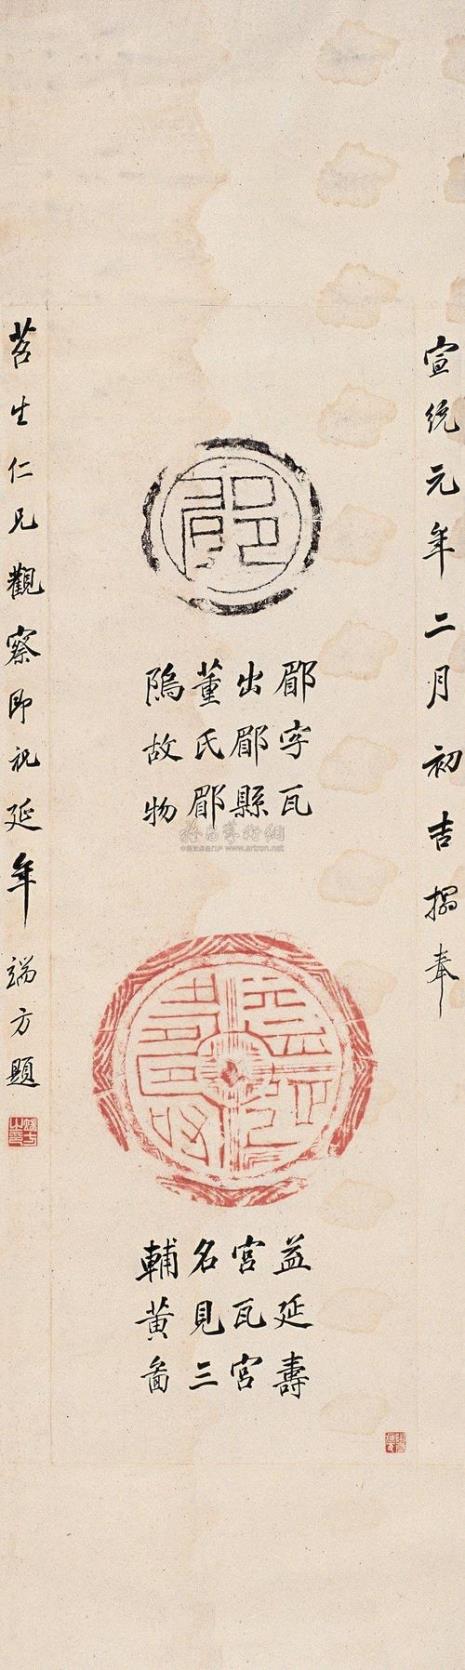 宣统元年二月初吉搨奉
郿
郿字瓦
出郿縣
董氏郿
隖故物
www.artron.net
益延壽
宮瓦宮
名見三
輔黃啚
苕生仁兄觀察即祝延年端方題